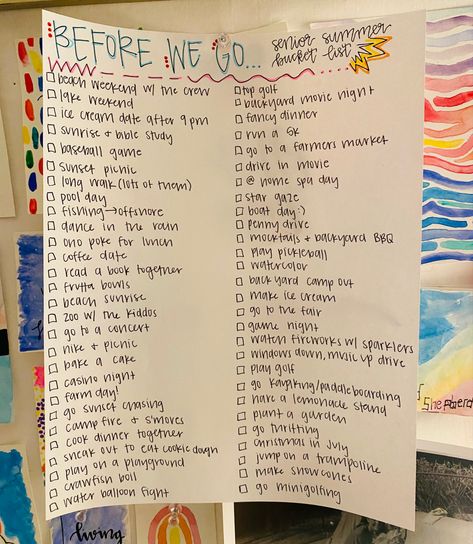 BEFORE WE GO...
senior summer
bucket list
beach weekend w/ the crew
lake weekend
ice cream date after 9 pm
sunrise + bible study
baseball game
sunset picnic
long walk (lots of them)
pool day
fishing → offshore
dance in the rain
ono poke for lunch
coffee date
read a book together
frutta bowls
beach sunrise
zoo w/ the kiddos
go to a concert
hike + picnic
bake a cake
casino night
farm day!
go sunset chasing
camp fire + s'mores
cook dinner together
sneak out to eat cookie dough
play on a playground
crawfish boil
water balloon fight
top golf
backyard movie night
fancy dinner
run a 5k
go to a farmers market
drive in movie
@ home spa day
star gaze
boat day :)
penny drive
mocktails + backyard BBQ
play pickleball
watercolor
backyard camp out
make ice cream
go to the fair
game night
watch fireworks w/ sparklers
windows down, music up drive
play golf
go kayaking/paddleboarding
have a lemonade stand
plant a garden
go thrifting
christmas in july
jump on a trampoline
make snowcones
go minigolfing
living